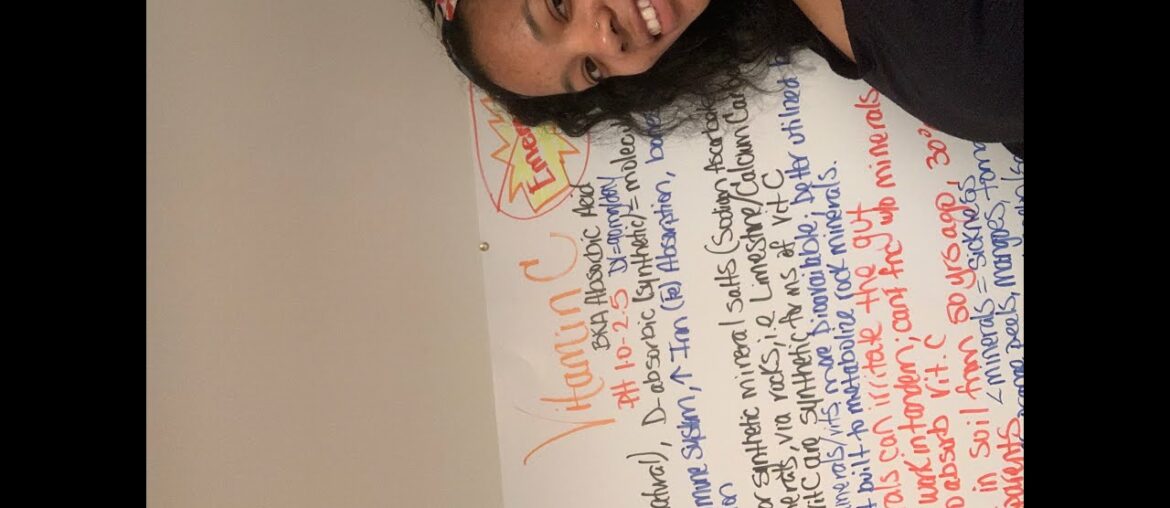 Vitamin C
BKA Absorbic Acid
PH 1.0-2.5 DV=90mg/day
atural), D-absorbic (synthetic)/= molecu
mune system, ↑ Iron (Fe) Absorption, bone
on
or synthetic mineral salts (Sodium Ascorba
nerals, via rocks, i.e Limestone/Calcium Car
vit C are synthetic forms of Vit C
inerals/vits more bioavailable; better utilized b
t built to metabolize rock minerals.
rals can irritate the gut
work in tandem; cant fnc w/o minerals
o absorb Vit. C
in soil from 50 yrs ago, 30
< minerals = sickness
peels, mangoes,